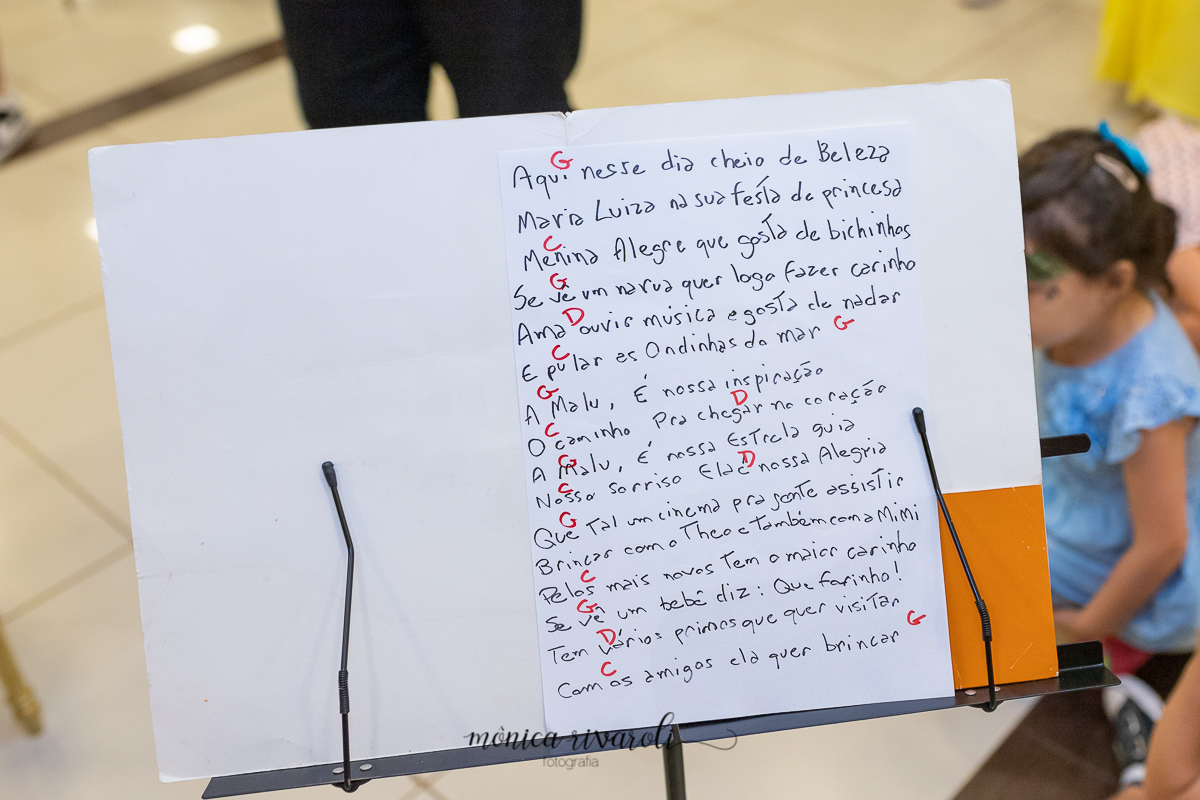 G
Aqui nesse dia cheio de Beleza
Maria Luiza na sua festa de princesa
C
Menina Alegre que gosta de bichinhos
G
Se vê um narua quer logo fazer carinho
D
Ama ouvir música e gosta de nadar
C G
E pular as Ondinhas do mar
G
A Malu, É nossa inspiração
C D
O caminho Pra chegar no coração
G
A Malu, É nossa Estrela guia
C D
Nosso sorriso Ela é nossa Alegria
G
Que Tal um cinema pra gente assistir
Brincar com o Theo e também com a Mimi
C
Pelos mais novos Tem o maior carinho
G
Se vê um bebê diz: Que fofinho!
D
Tem vários primos que quer visitar
C G
Com os amigos ela quer brincar
mònica rivaroli
fotografia